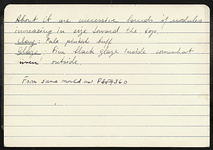 About it are successive bands of nodules
increasing in size toward the top.
Clay: Pale pinkish buff
Glaze: Firm black glaze inside somewhat
outside.
From same mould as P